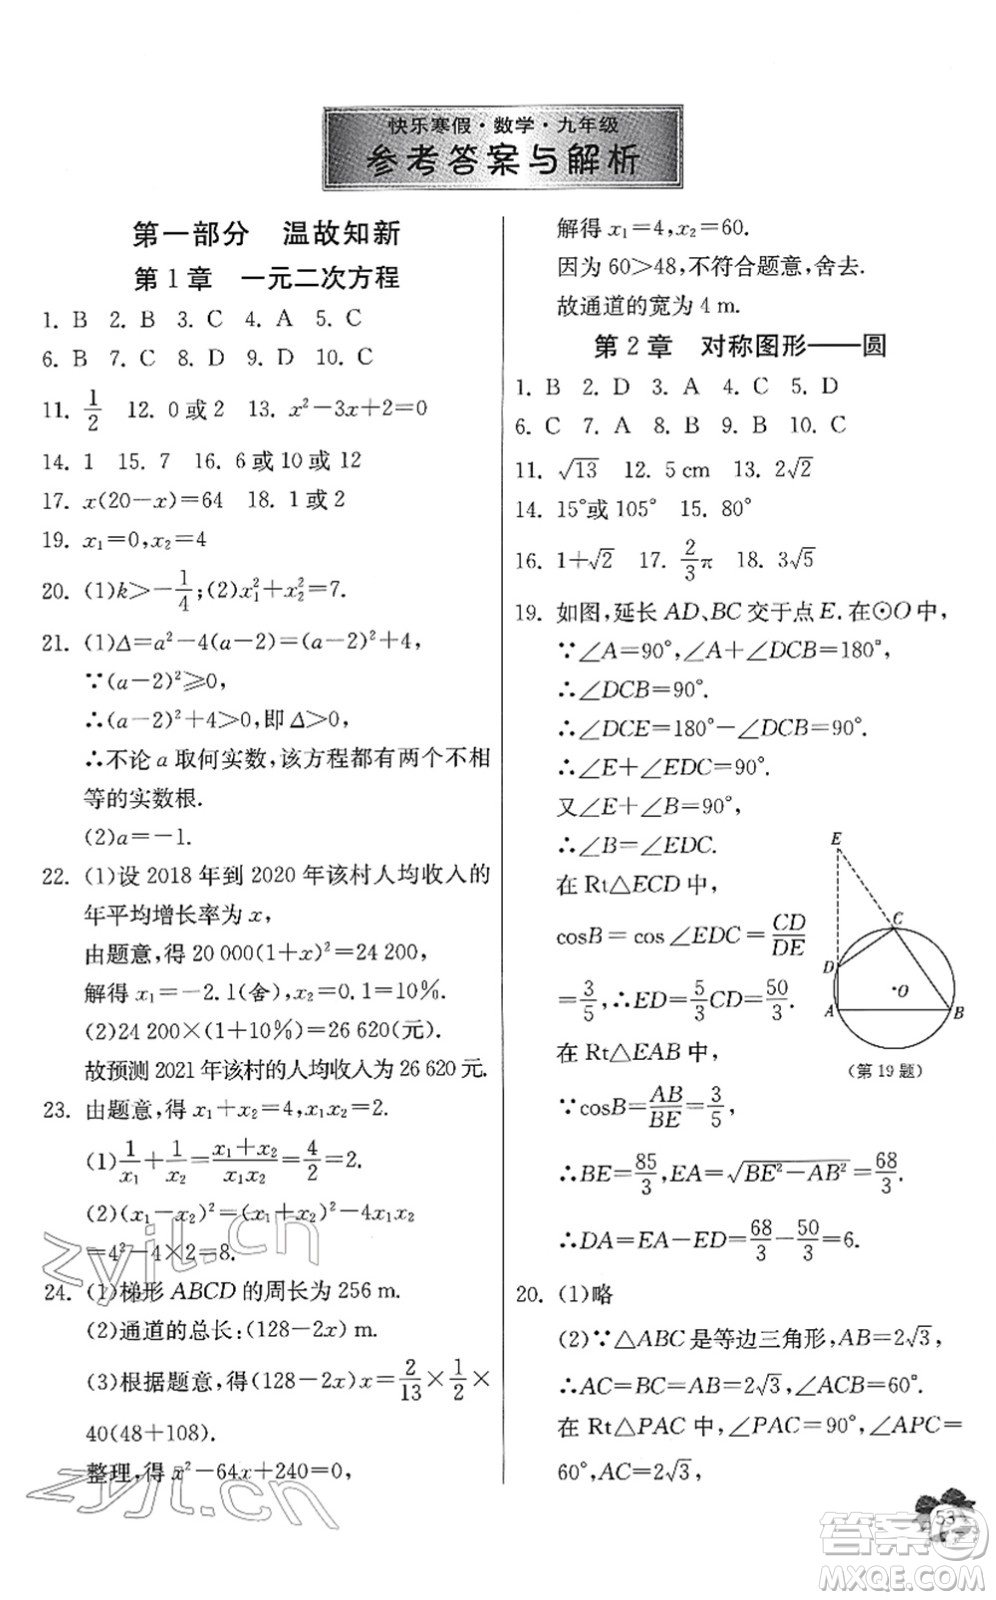 快乐寒假·数学·九年级
参考答案与解析
第一部分 温故知新
第1章 一元二次方程
1. B 2. B 3. C 4. A 5. C
6. B 7. C 8. D 9. D 10. C
11. 1/2 12. 0或2 13. x²-3x+2=0
14. 1 15. 7 16. 6或10或12
17. x(20-x)=64 18. 1或2
19. x₁=0,x₂=4
20. (1)k>-1/4;(2)x₁²+x₂²=7.
21. (1)Δ=a²-4(a-2)=(a-2)²+4,
∵(a-2)²≥0,
∴(a-2)²+4>0,即Δ>0,
∴不论a取何实数,该方程都有两个不相
等的实数根.
(2)a=-1.
22. (1)设2018年到2020年该村人均收入的
年平均增长率为x,
由题意,得20 000(1+x)²=24 200,
解得x₁=-2.1(舍),x₂=0.1=10%.
(2)24 200×(1+10%)=26 620(元).
故预测2021年该村的人均收入为26 620元.
23. 由题意,得x₁+x₂=4,x₁x₂=2.
(1)1/x₁+1/x₂=(x₁+x₂)/(x₁x₂)=4/2=2.
(2)(x₁-x₂)²=(x₁+x₂)²-4x₁x₂
=4²-4×2=8.
24. (1)梯形ABCD的周长为256 m.
(2)通道的总长:(128-2x) m.
(3)根据题意,得(128-2x)x=2/13×1/2×
40(48+108).
整理,得x²-64x+240=0,
解得x₁=4,x₂=60.
因为60>48,不符合题意,舍去.
故通道的宽为4 m.
第2章 对称图形——圆
1. B 2. D 3. A 4. C 5. D
6. C 7. A 8. B 9. B 10. C
11. √13 12. 5 cm 13. 2√2
14. 15°或105° 15. 80°
16. 1+√2 17. 2/3π 18. 3√5
19. 如图,延长AD、BC交于点E.在⊙O中,
∵∠A=90°,∠A+∠DCB=180°,
∴∠DCB=90°.
∴∠DCE=180°-∠DCB=90°.
∴∠E+∠EDC=90°.
又∠E+∠B=90°,
∴∠B=∠EDC.
在Rt△ECD中,
cosB=cos∠EDC=CD/DE
=3/5,∴ED=5/3CD=50/3.
在Rt△EAB中,
∵cosB=AB/BE=3/5,
∴BE=85/3,EA=√(BE²-AB²)=68/3.
∴DA=EA-ED=68/3-50/3=6.
E
C
D
O
A
B
(第19题)
20. (1)略
(2)∵△ABC是等边三角形,AB=2√3,
∴AC=BC=AB=2√3,∠ACB=60°.
在Rt△PAC中,∠PAC=90°,∠APC=
60°,AC=2√3,
53
zyjl.cn
zyjl.cn
答案圈
MXQE.COM